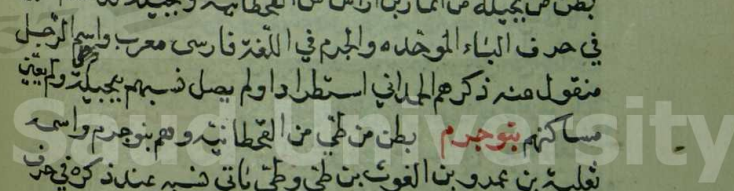 بطن من بجيلة من انمار بن اراش من القحطانية وبجيلة
في حرف الباء الموحده والجرم في اللغة فارسى معرب واسم الرجل
منقول عنه ذكرهم الحمدانى استطرادا ولم يصل نسبهم ببجيلة ولم يعين
مساكنهم بنو جرم بطن من طي من القحطانية وهم بنو جرم واسمه
ثعلبة بن عمرو بن الغوث بن طي وطي ياتي نسبه عند ذكره في حرف
Saud University